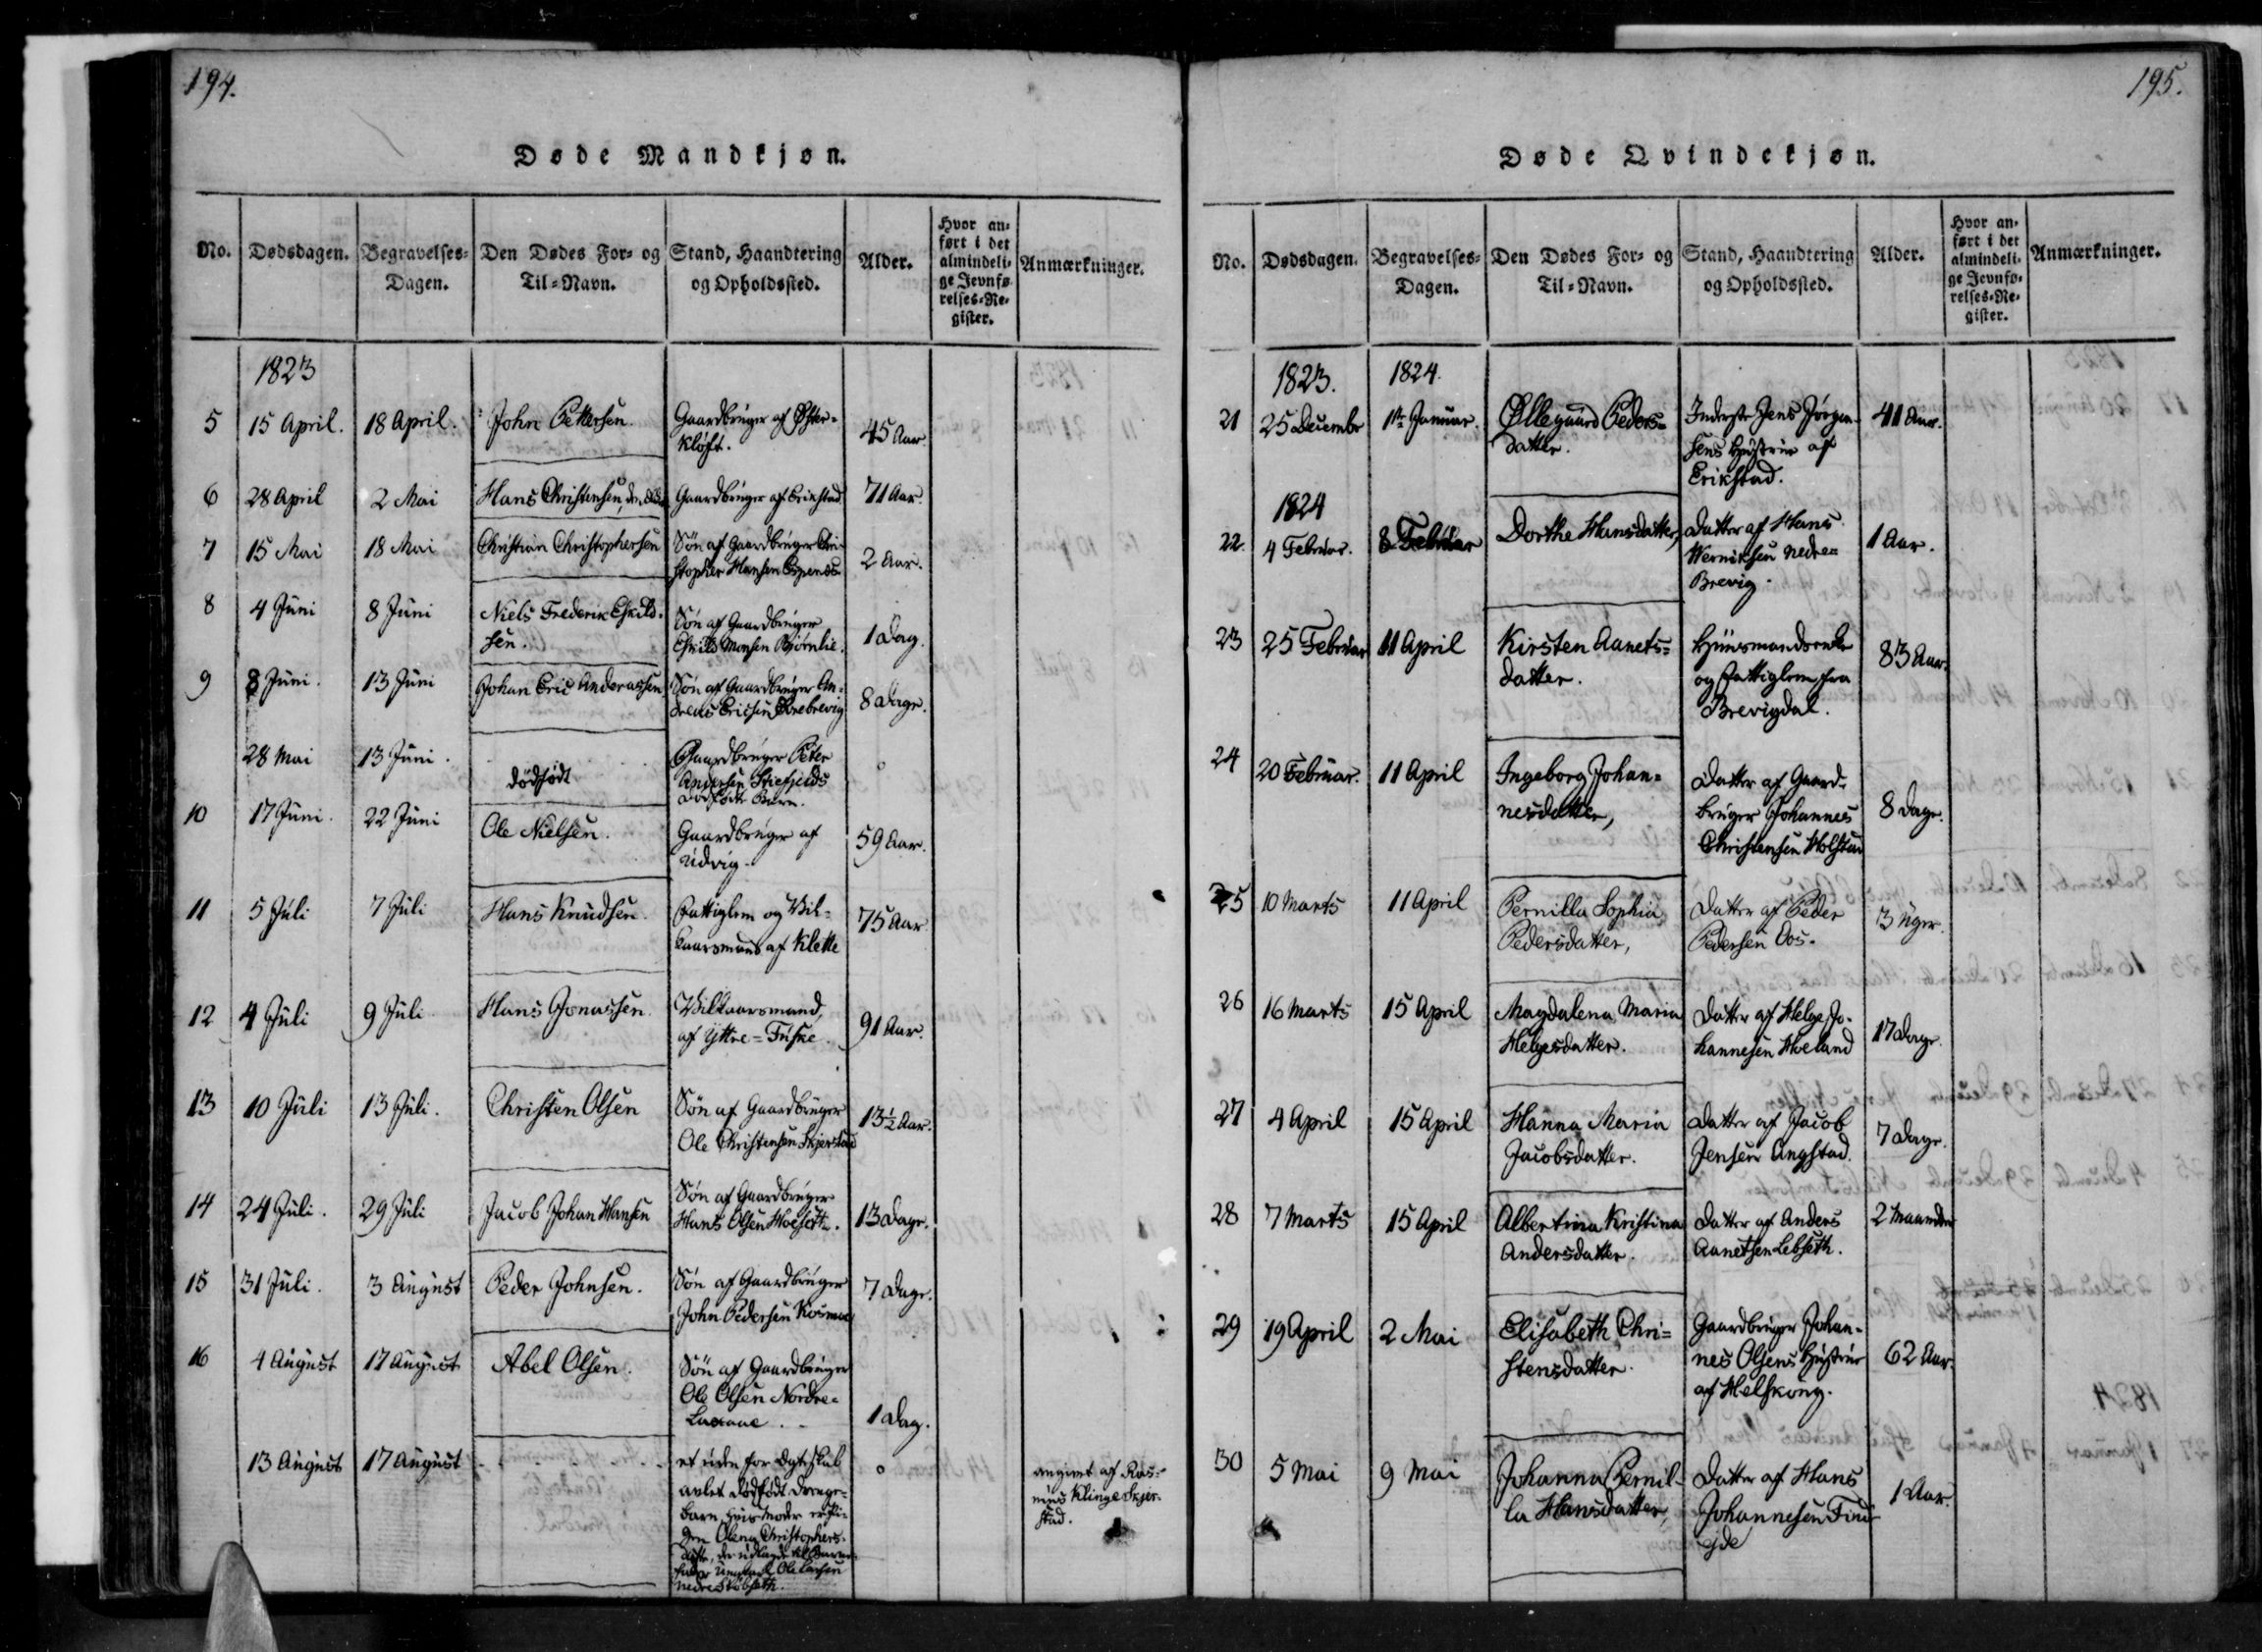 194.
Døde Mandkjøn.
No. Dødsdagen. Begravelses-Dagen. Den Dødes For- og Til-Navn. Stand, Haandtering og Opholdssted. Alder. Hvor anført i det almindelige Jevnførelses-Register. Anmærkninger.
1823
5 15 April. 18 April. John Pettersen. Gaardbruger af Øster-
kløft. 45 Aar
6 28 April 2 Mai Hans Christensen, den Gaardbruger af Erikstad 71 Aar.
7 15 Mai 18 Mai Christian Christophersen Søn af Gaardbruger Chri-
stopher Hansen Espenes 2 Aar.
8 4 Juni 8 Juni Niels Frederik Eskild-
sen. Søn af Gaardbruger
Eskild Monsen Bjørnlie. 1 Dag.
9 8 Juni. 13 Juni Johan Eric Andreassen Søn af Gaardbruger An-
dreas Ericsen Øvrebrevig 8 Dage.
28 Mai 13 Juni. dödfödt Gaardbruger Peter
Andersen Stiefjelds
dødfødte Barn. °
10 17 Juni. 22 Juni Ole Nielsen. Gaardbruger af
Udvig. 59 Aar.
11 5 Juli 7 Juli Hans Knudsen. Fattiglem og Vil-
kaarsmand af Klette 75 Aar
12 4 Juli 9 Juli Hans Jonassen. Vilkaarsmand,
af Yttre-Fuske. 91 Aar.
13 10 Juli 13 Juli. Christen Olsen Søn af Gaardbruger
Ole Christensen Skjerstad 13½ Aar.
14 24 Juli. 29 Juli Jacob Johan Hansen Søn af Gaardbruger
Hans Olsen Hoesæt. 13 Dage.
15 31 Juli. 3 August Peder Johnsen. Søn af Gaardbruger
John Pedersen Kosmoe 7 Dage.
16 4 August 17 August Abel Olsen. Søn af Gaardbruger
Ole Olsen Nordre-
Laxaae. 1 Dag.
13 August 17 August et uden for Egteskab
avlet dødfødt Drenge-
barn, hvis Moder er Pi-
gen Olena Christophers-
datter, der udlagde til Barne-
fader Ungkarl Ole Larsen
nedre ° angivet af Ras-
mus Klinge Skjer-
stad.
195.
Døde Qvindekjøn.
No. Dødsdagen. Begravelses-Dagen. Den Dødes For- og Til-Navn. Stand, Haandtering og Opholdssted. Alder. Hvor anført i det almindelige Jevnførelses-Register. Anmærkninger.
1823. 1824.
21 25 Decembr 1ste Januar. Øllegaard Peders-
datter. Inderste Jens Jørgen-
sens Hustrue af
Erikstad. 41 Aar.
1824
22. 4 Februar. 8 Februar Dorthe Hansdatter, Datter af Hans
Werniksen Nedre-
Brevig. 1 Aar.
23 25 Februar 11 April Kirsten Aanets-
datter. Huusmandsenke
og Fattiglem fra
Brevigdal. 83 Aar.
24 20 Februar. 11 April Ingeborg Johan-
nesdatter, Datter af Gaard-
bruger Johannes
Christensen Holstad 8 Dage.
25 10 Marts 11 April Pernilla Sophia
Pedersdatter, Datter af Peder
Pedersen Oos. 3 Uger.
26 16 Marts 15 April Magdalena Maria
Helgesdatter. Datter af Helge Jo-
hannesen Hoeland 17 Dage.
27 4 April 15 April Hanna Maria
Jacobsdatter. Datter af Jacob
Jensen Angstad. 7 Dage.
28 7 Marts 15 April Albertina Kristina
Andersdatter. Datter af Anders
Aanetsen Lebseth. 2 Maaneder
29 19 April 2 Mai Elisabeth Chri-
stensdatter. Gaardbruger Johan-
nes Olsens Hustrue
af Helskong. 62 Aar.
30 5 Mai 9 Mai Johanna Pernil-
la Hansdatter, Datter af Hans
Johannesen Find-
eide 1 Aar.